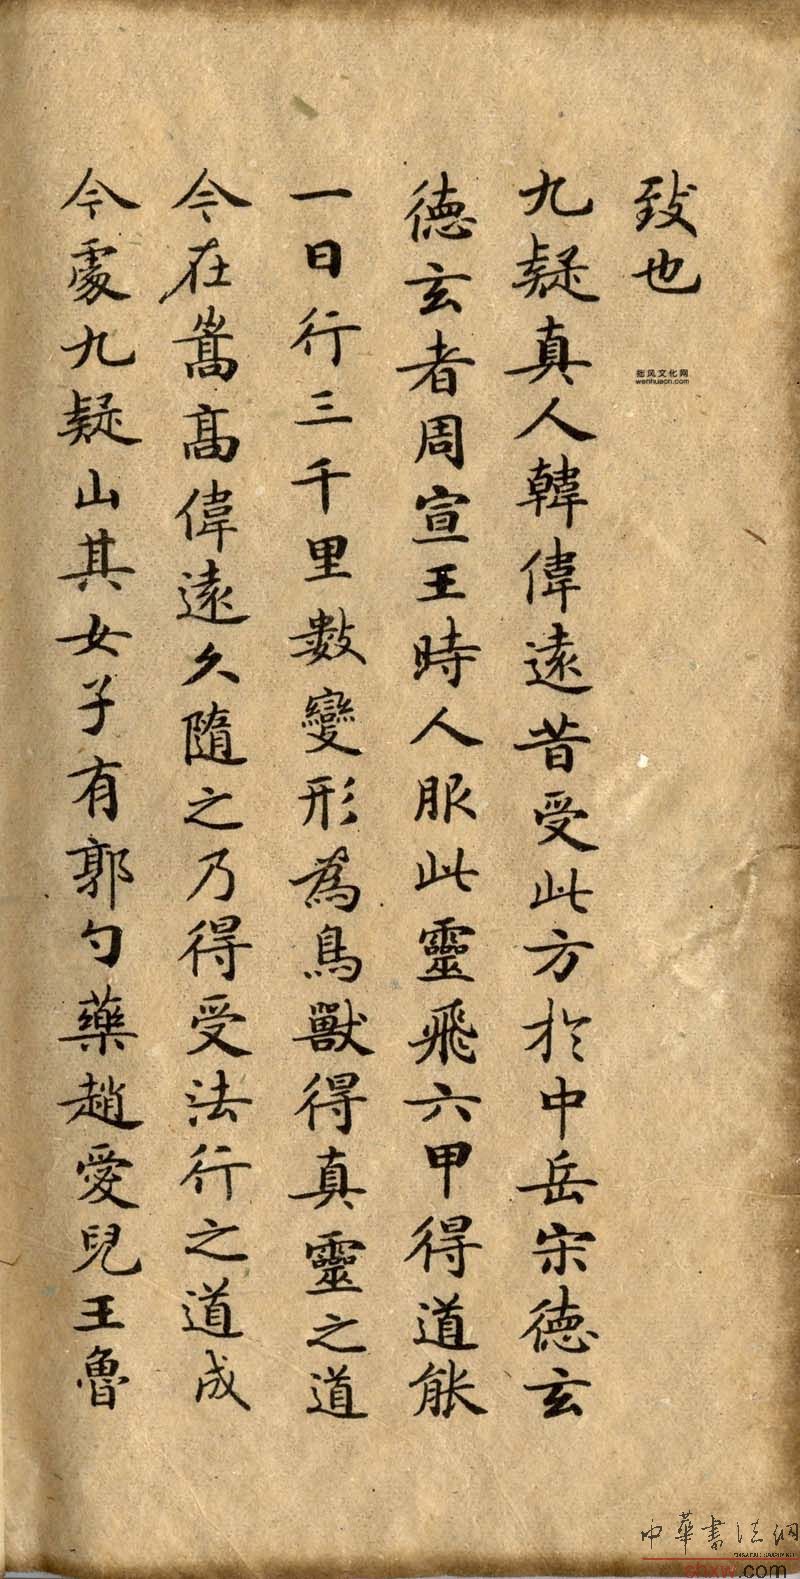 致也
九疑真人韓偉遠昔受此方於中岳宋德玄
德玄者周宣王時人服此靈飛六甲得道能
一日行三千里數變形為鳥獸得真靈之道
今在嵩高偉遠久隨之乃得受法行之道成
今處九疑山其女子有郭勺藥趙愛兒王魯
拙风文化网
wenhuacn.com
中華書法網
shxw.com